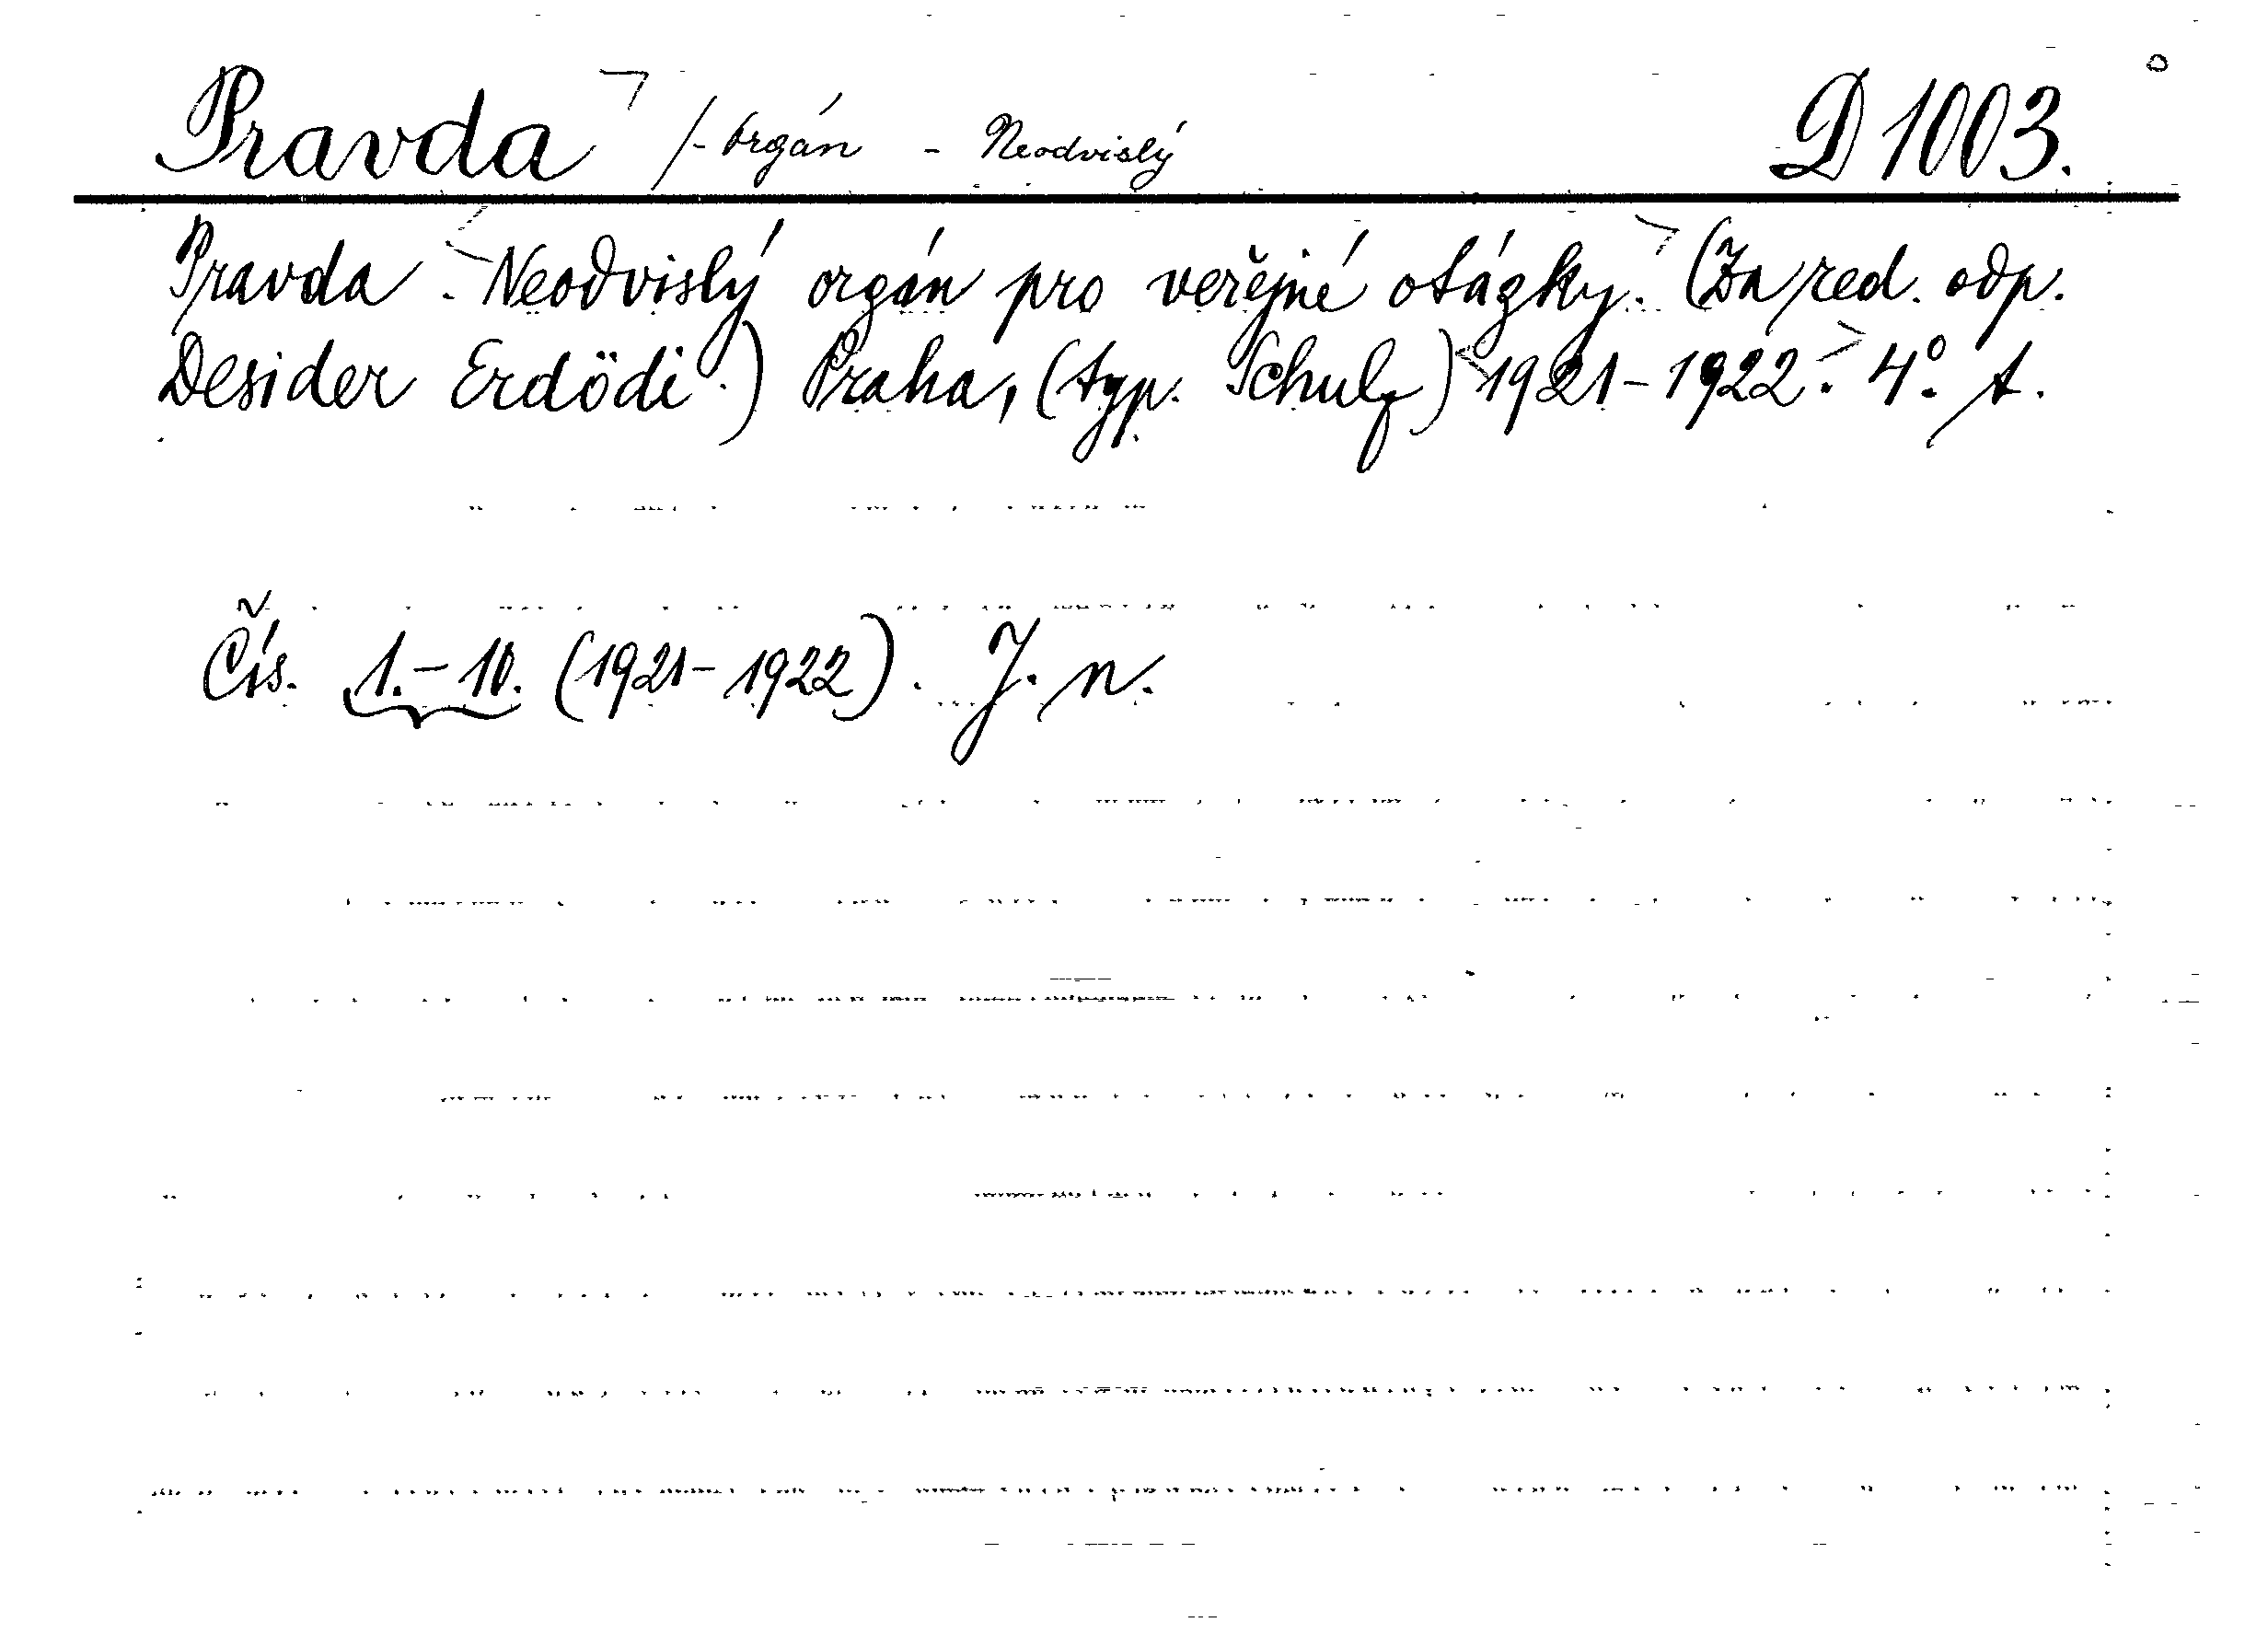 Pravda /- orgán - Neodvislý D 1003.
Pravda. Neodvislý orgán pro veřejné otázky. (Za red. odp.
Desider Erdödi.) Praha, (typ. Schulz) 1921-1922. 4°. t.
Čís. 1.-10. (1921-1922). J. n.